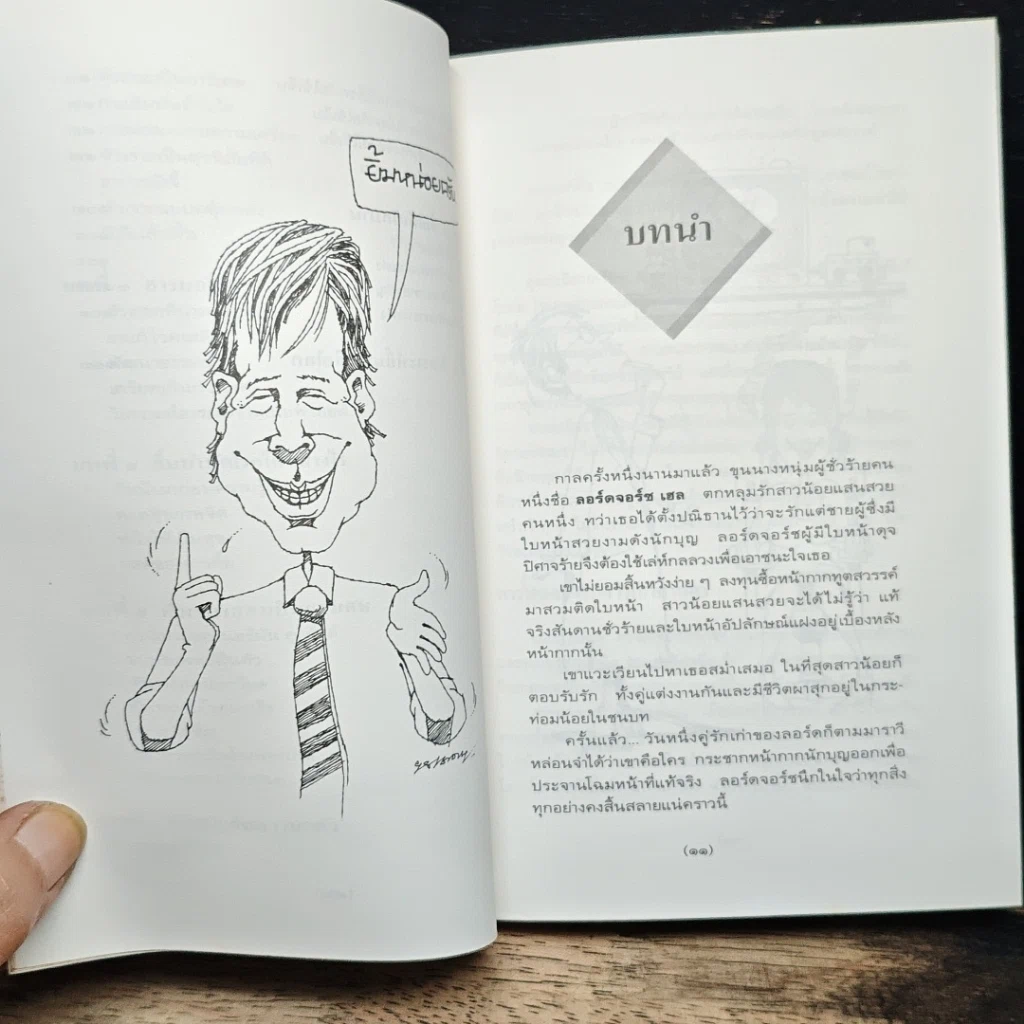 ยิ้มหน่อยครับ
บทนำ
กาลครั้งหนึ่งนานมาแล้ว ขุนนางหนุ่มผู้ชั่วร้ายคน
หนึ่งชื่อ ลอร์ดจอร์ช เฮล ตกหลุมรักสาวน้อยแสนสวย
คนหนึ่ง ทว่าเธอได้ตั้งปณิธานไว้ว่าจะรักแต่ชายผู้ซึ่งมี
ใบหน้าสวยงามดังนักบุญ ลอร์ดจอร์ชผู้มีใบหน้าดุจ
ปิศาจร้ายจึงต้องใช้เล่ห์กลลวงเพื่อเอาชนะใจเธอ
เขาไม่ยอมสิ้นหวังง่าย ๆ ลงทุนซื้อหน้ากากทูตสวรรค์
มาสวมติดใบหน้า สาวน้อยแสนสวยจะได้ไม่รู้ว่า แท้
จริงสันดานชั่วร้ายและใบหน้าอัปลักษณ์แฝงอยู่เบื้องหลัง
หน้ากากนั้น
เขาแวะเวียนไปหาเธอสม่ำเสมอ ในที่สุดสาวน้อยก็
ตอบรับรัก ทั้งคู่แต่งงานกันและมีชีวิตผาสุกอยู่ในกระ-
ท่อมน้อยในชนบท
ครั้นแล้ว... วันหนึ่งคู่รักเก่าของลอร์ดก็ตามมาราวี
หล่อนจำได้ว่าเขาคือใคร กระชากหน้ากากนักบุญออกเพื่อ
ประจานโฉมหน้าที่แท้จริง ลอร์ดจอร์ชนึกในใจว่าทุกสิ่ง
ทุกอย่างคงสิ้นสลายแน่คราวนี้
(๑๑)